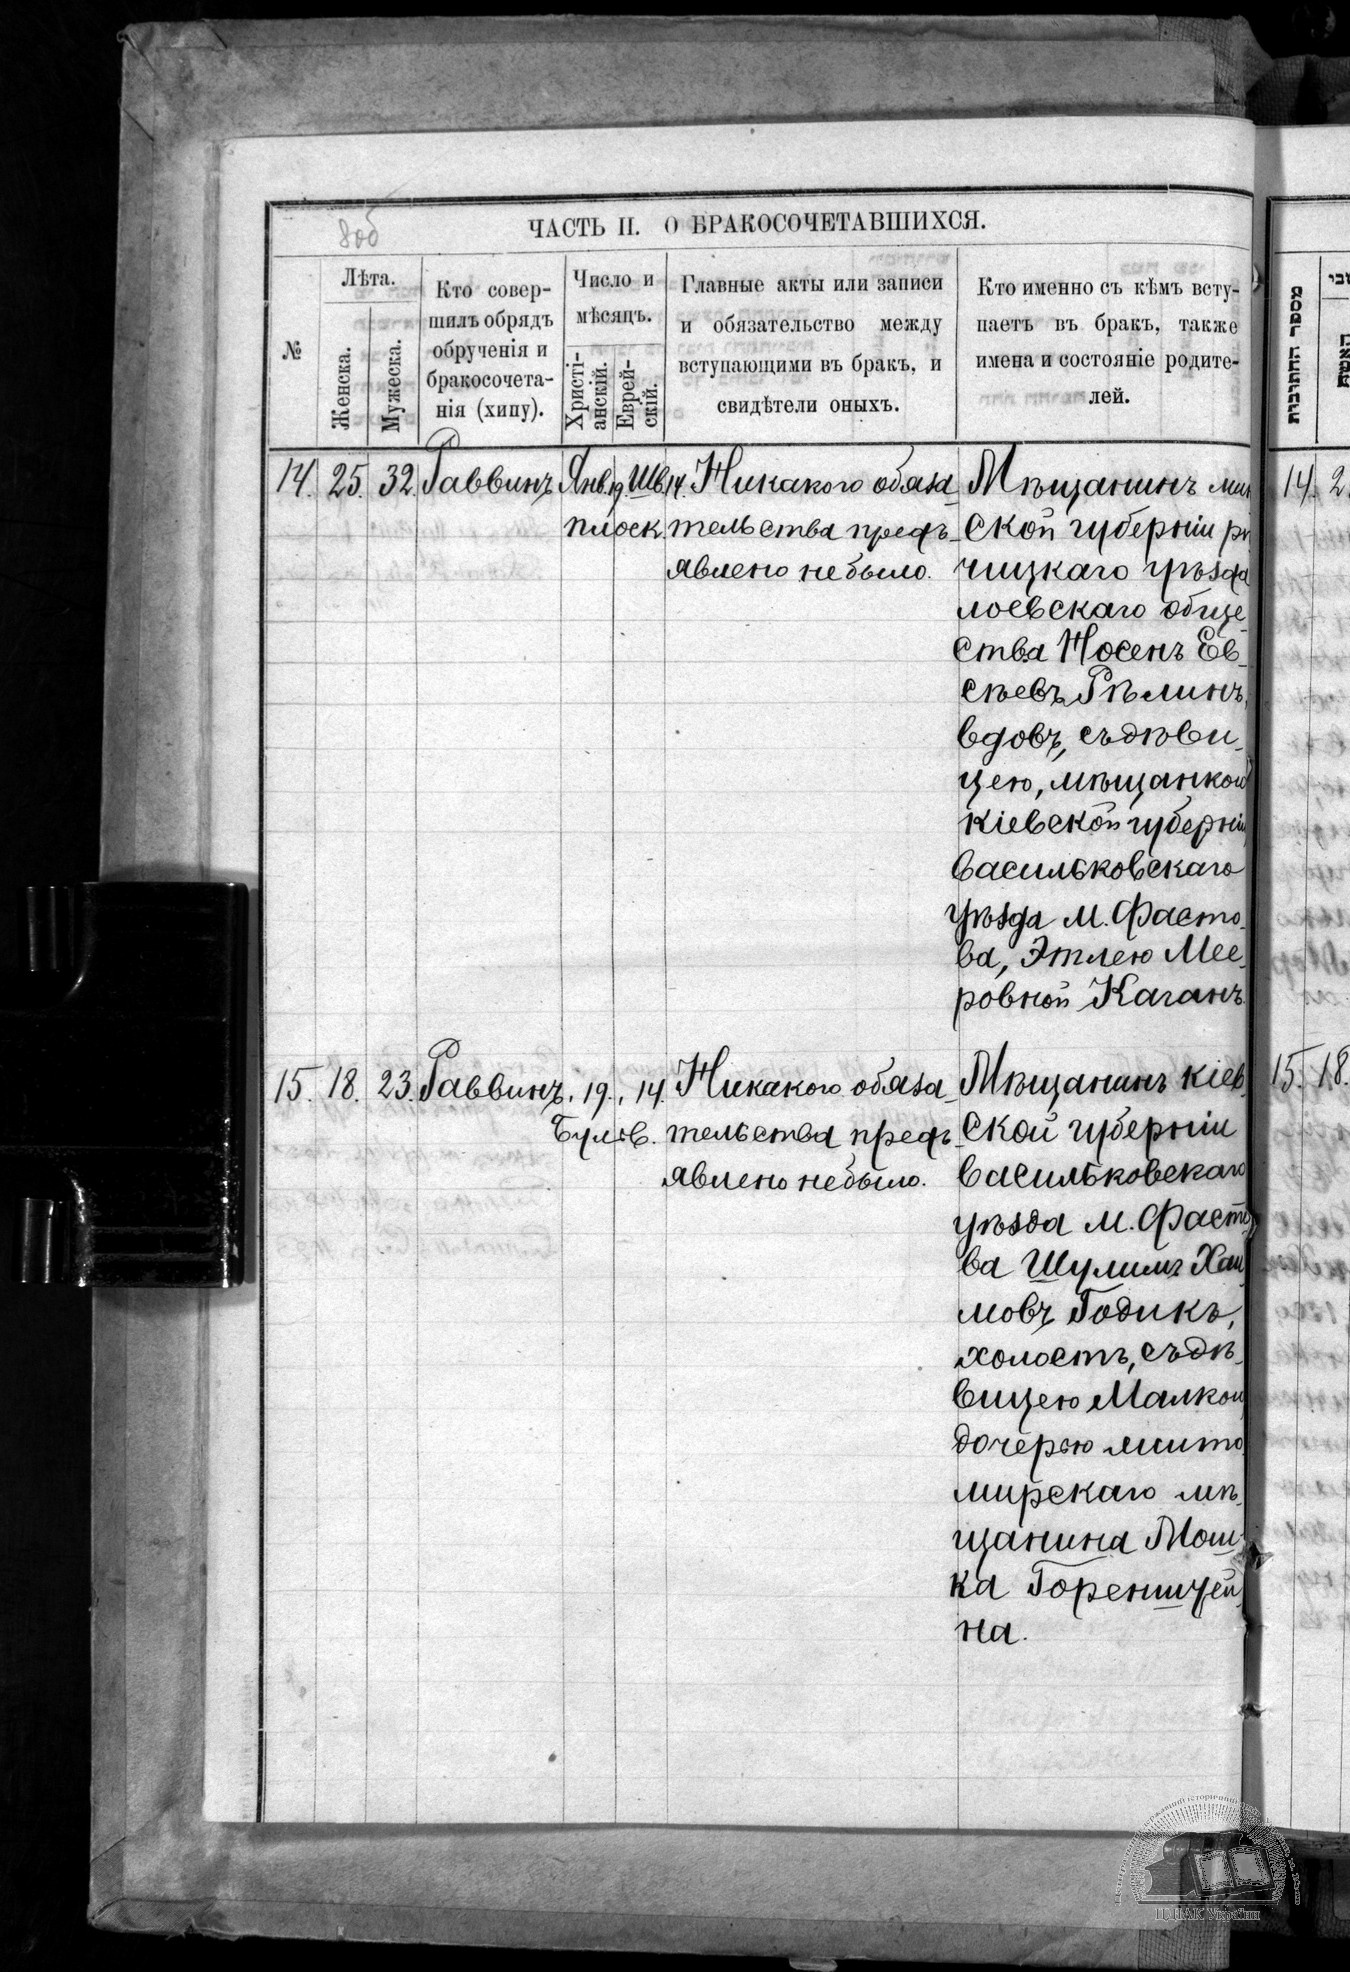 8об
ЧАСТЬ II. О БРАКОСОЧЕТАВШИХСЯ.
№
Лѣта.
Женска.
Мужеска.
Кто совер-
шилъ обрядъ
обрученія и
бракосочета-
нія (хипу).
Число и
мѣсяцъ.
Христі-
анскій.
Еврей-
скій.
Главные акты или записи
и обязательство между
вступающими въ бракъ, и
свидѣтели оныхъ.
Кто именно съ кѣмъ всту-
паетъ въ бракъ, также
имена и состояніе родите-
лей.
מספר החתונות
14. 25. 32. Раввинъ Янв. 19 Шв. 14. Никакого обяза-
плоск тельства предъ-
явлено не было.
Мѣщанинъ мин
ской губерніи рѣ
чицкаго уѣзда
лоевскаго обще-
ства Носенъ Ев-
сѣевъ Рѣлинъ,
вдовъ, съ дѣви-
цею, мѣщанкою
кіевской губерніи
Васильковскаго
уѣзда м. Фасто-
ва, Этлею Мее-
ровной Каганъ.
15. 18. 23. Раввинъ. 19. 14. Никакого обяза-
Бульв. тельства предъ-
явлено не было.
Мѣщанинъ кіев-
ской губерніи
Васильковскаго
уѣзда м. Фасто
ва Шулимъ Хаи
мовъ Годикъ,
холостъ, съ дѣ-
вицею Малкою
дочерью жито
мирскаго мѣ-
щанина Мош-
ка Горенштей
на.
14. 2
15. 18.
ЦДІАК України